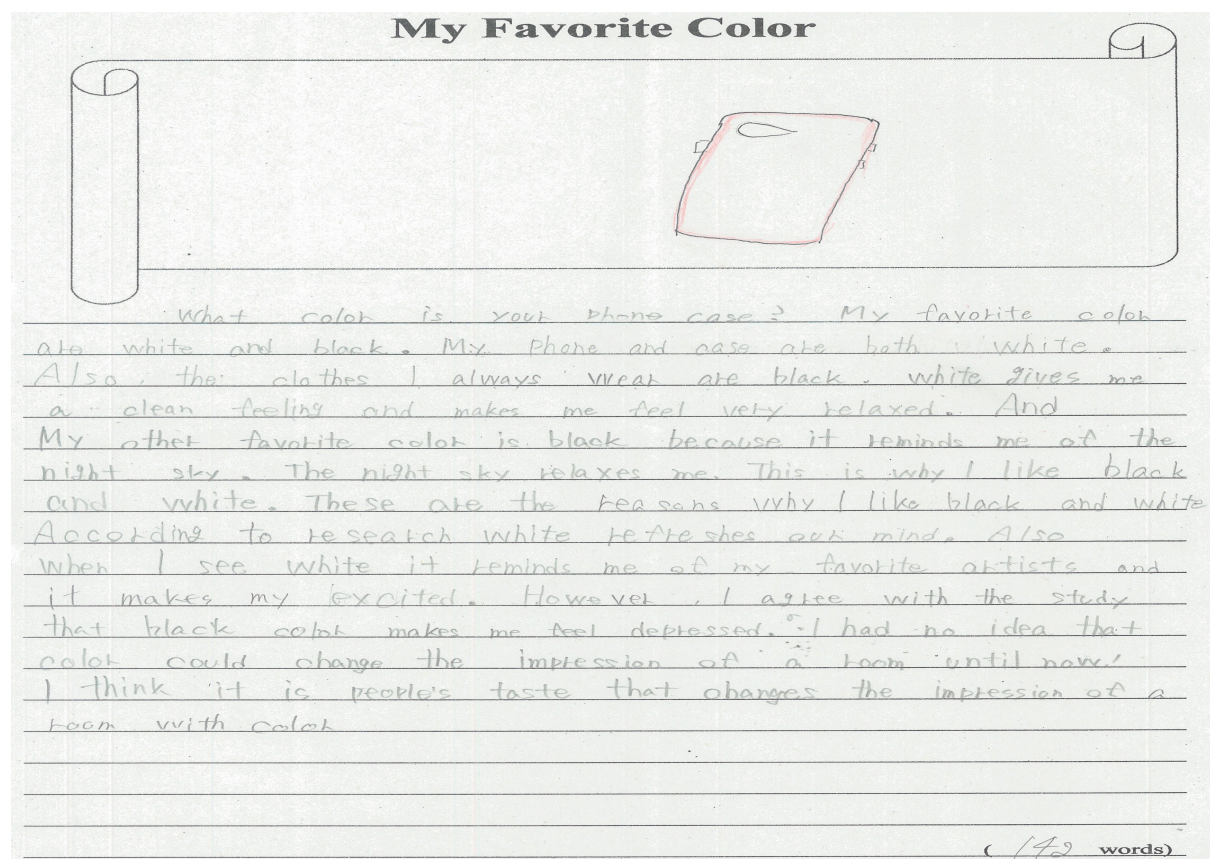 My Favorite Color
What color is your phone case? My favorite color
are white and black. My phone and case are both white.
Also, the clothes I always wear are black. white gives me
a clean feeling and makes me feel very relaxed. And
My other favorite color is black because it reminds me of the
night sky. The night sky relaxes me. This is why I like black
and white. These are the reasons why I like black and white
According to research white refreshes our mind. Also
when I see white it reminds me of my favorite artists and
it makes my excited. However, I agree with the study
that black color makes me feel depressed. I had no idea that
color could change the impression of a room until now!
I think it is people's taste that changes the impression of a
room with color
( 142 words)